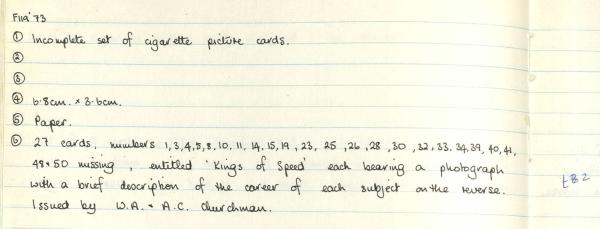 F119'73
① Incomplete set of cigarette picture cards.
②
③
④ 6.8cm. x 3.6cm.
⑤ Paper.
⑥ 27 cards, numbers 1,3,4,5,8,10,11,14,15,19,23,25,26,28,30,32,33,34,39,40,41,
48+50 missing, entitled 'Kings of Speed' each bearing a photograph
with a brief description of the career of each subject on the reverse.
Issued by W.A. + A.C. Churchman.